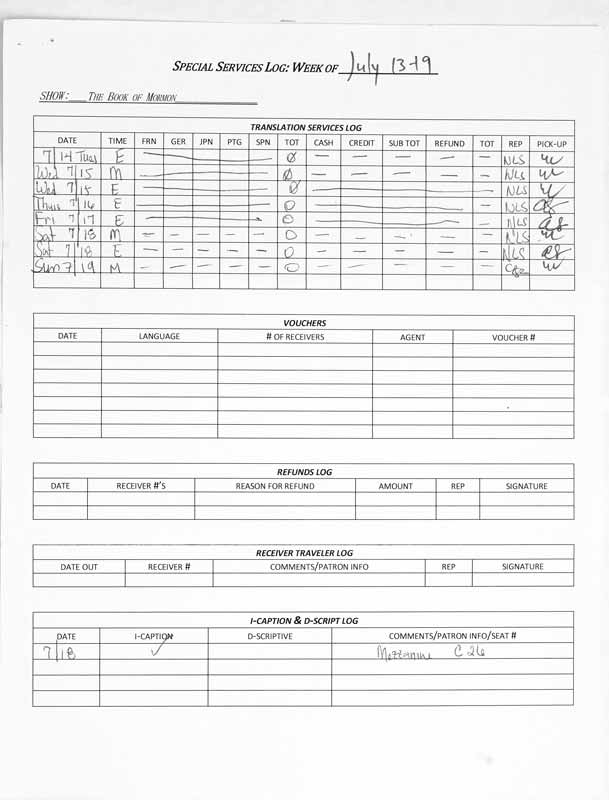 SPECIAL SERVICES LOG: WEEK OF July 13-19
SHOW: THE BOOK OF MORMON
TRANSLATION SERVICES LOG
DATE TIME FRN GER JPN PTG SPN TOT CASH CREDIT SUB TOT REFUND TOT REP PICK-UP
7/14 Tues E Ø — — — — — NLS
Wed 7/15 M Ø — — — — — NLS
Wed 7/15 E Ø NLS
Thus 7/16 E 0 — NLS
Fri 7/17 E 0 — NLS
Sat 7/18 M — — — — — 0 — — — — — NLS
Sat 7/18 E — — — — — 0 — — — — — NLS
Sun 7/19 M — — — — — 0 — — — — —
VOUCHERS
DATE LANGUAGE # OF RECEIVERS AGENT VOUCHER #
REFUNDS LOG
DATE RECEIVER #'S REASON FOR REFUND AMOUNT REP SIGNATURE
RECEIVER TRAVELER LOG
DATE OUT RECEIVER # COMMENTS/PATRON INFO REP SIGNATURE
I-CAPTION & D-SCRIPT LOG
DATE I-CAPTION D-SCRIPTIVE COMMENTS/PATRON INFO/SEAT #
7/18 ✓ Mezzanine C 26